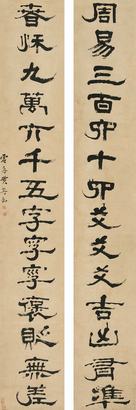 周易三百八十四爻爻爻吉凶胥準
春秌九萬六千五字字字褒貶無差